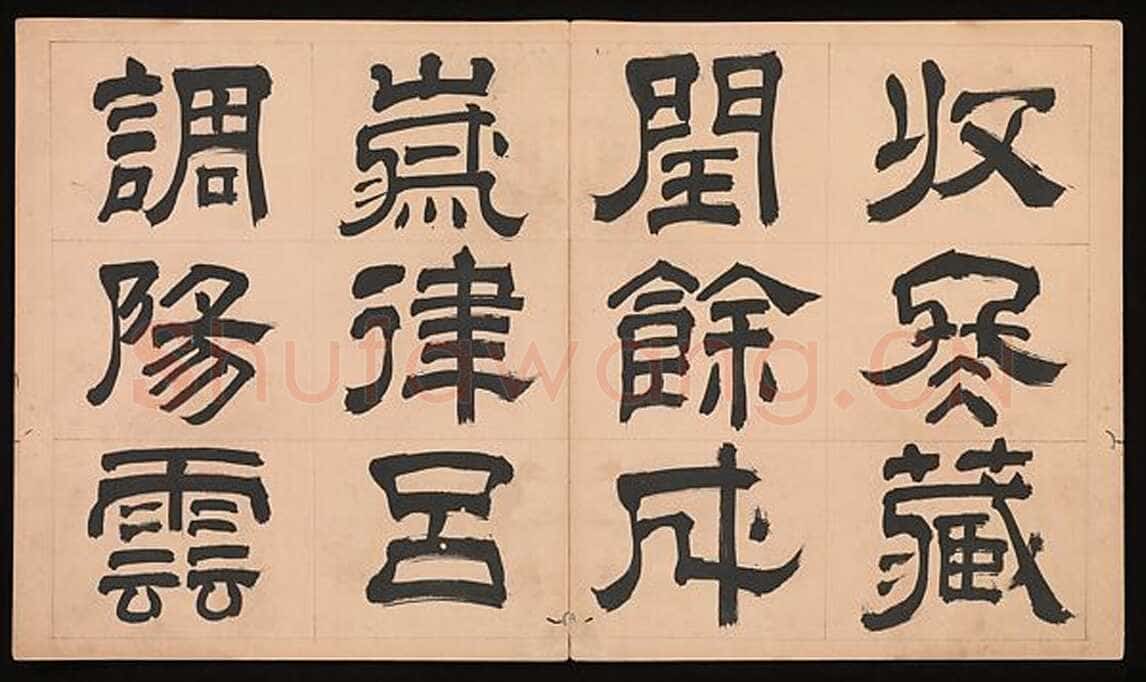 收冬藏
閏餘成
歲律呂
調陽雲
Shufawang.cn